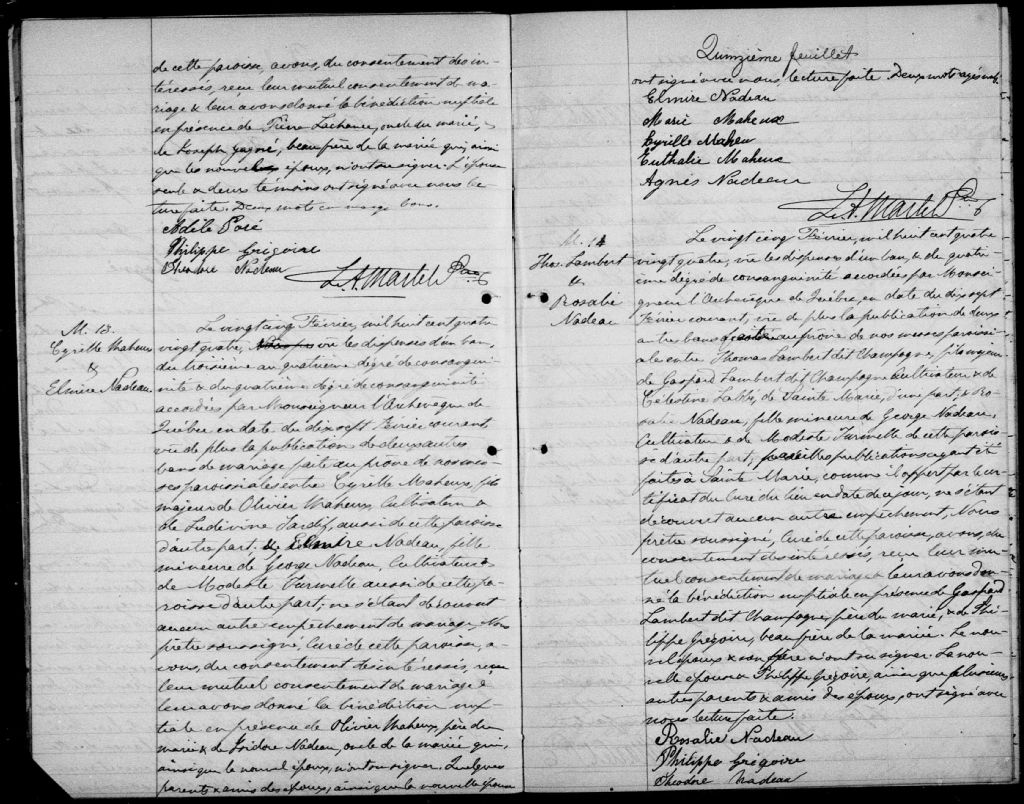 de cette paroisse, avons, du consentement des in-
téressés, reçu leur mutuel consentement de ma-
riage & leur avons donné la bénédiction nuptiale
en présence de Pierre Lachance, oncle du marié, &
de Joseph Gagné, beau père de la mariée qui, ainsi
que les nouveaux époux, n'ont su signer. L'épouse
seule & deux témoins ont signé avec nous lec-
ture faite. Deux mots en marge bons.
Adèle
Philippe Grégoire
Théodore Nadeau
L.A. Martel Ptre
M. 13.
Cyrille Maheux
&
Elmire Nadeau
Le vingt cinq Février, mil huit cent quatre
vingt quatre, vu les dispenses d'un ban,
du troisième au quatrième degré de consangui-
nité & du quatrième degré de consanguinité
accordées par Monseigneur l'Archevêque de
Québec en date du dix sept Février courant
vu de plus la publication de deux autres
bans de mariage faite au prône de nos mes-
ses paroissiales entre Cyrille Maheux, fils
majeur de Olivier Maheux, Cultivateur &
de Ludivine Tardif, aussi de cette paroisse
d'autre part, & Elmire Nadeau, fille
mineure de George Nadeau, Cultivateur &
de Modeste Turmelle aussi de cette pa-
roisse d'autre part; ne s'étant découvert
aucun autre empêchement de mariage, Nous
prêtre soussigné, Curé de cette paroisse, a-
vons, du consentement des intéressés, reçu
leur mutuel consentement de mariage &
leur avons donné la bénédiction nup-
tiale en présence de Olivier Maheux, père du
marié & de Isidore Nadeau, oncle de la mariée qui,
ainsi que le nouvel époux, n'ont su signer. Quelques
parents & amis des époux, ainsi que la nouvelle épouse
Quinzième feuillet
ont signé avec nous, lecture faite. Deux mots rayés nuls.
Elmire Nadeau
Marie Maheux
Cyrille Maheu
Euthalie Maheux
Agnès Nadeau
L.A. Martel Ptre
M. 14
Tho. Lambert
&
Rosalie
Nadeau
Le vingt cinq Février, mil huit cent quatre
vingt quatre, vu les dispenses d'un ban, & de quatri-
ème degré de consanguinité accordées par Monsei-
gneur l'Archevêque de Québec, en date du dix sept
Février courant, vu de plus la publication de deux
autre bans faite au prône de nos messes paroissi-
ale entre Thomas Lambert dit Champagne, fils majeur
de Gaspard Lambert dit Champagne Cultivateur & de
Célestine de Sainte Marie, d'une part; & Ro-
salie Nadeau, fille mineure de George Nadeau,
Cultivateur & de Modeste Turmelle de cette parois-
se d'autre part; pareilles publications ayant été
faites à Sainte Marie, comme il appert par le cer-
tificat du Curé du lieu en date de ce jour, ne s'étant
découvert aucun autre empêchement, Nous
prêtre soussigné, Curé de cette paroisse, avons, du
consentement des intéressés, reçu leur mu-
tuel consentement de mariage & leur avons don-
né la bénédiction nuptiale en présence de Gaspard
Lambert dit Champagne, père du marié, & de Phi-
lippe Grégoire, beau père de la mariée. Le nou-
vel époux & son père n'ont su signer. La nou-
velle épouse & Philippe Grégoire, ainsi que plusieurs
autre parents & amis des époux, ont signé avec
nous lecture faite.
Rosalie Nadeau
Philippe Grégoire
Théodore Nadeau